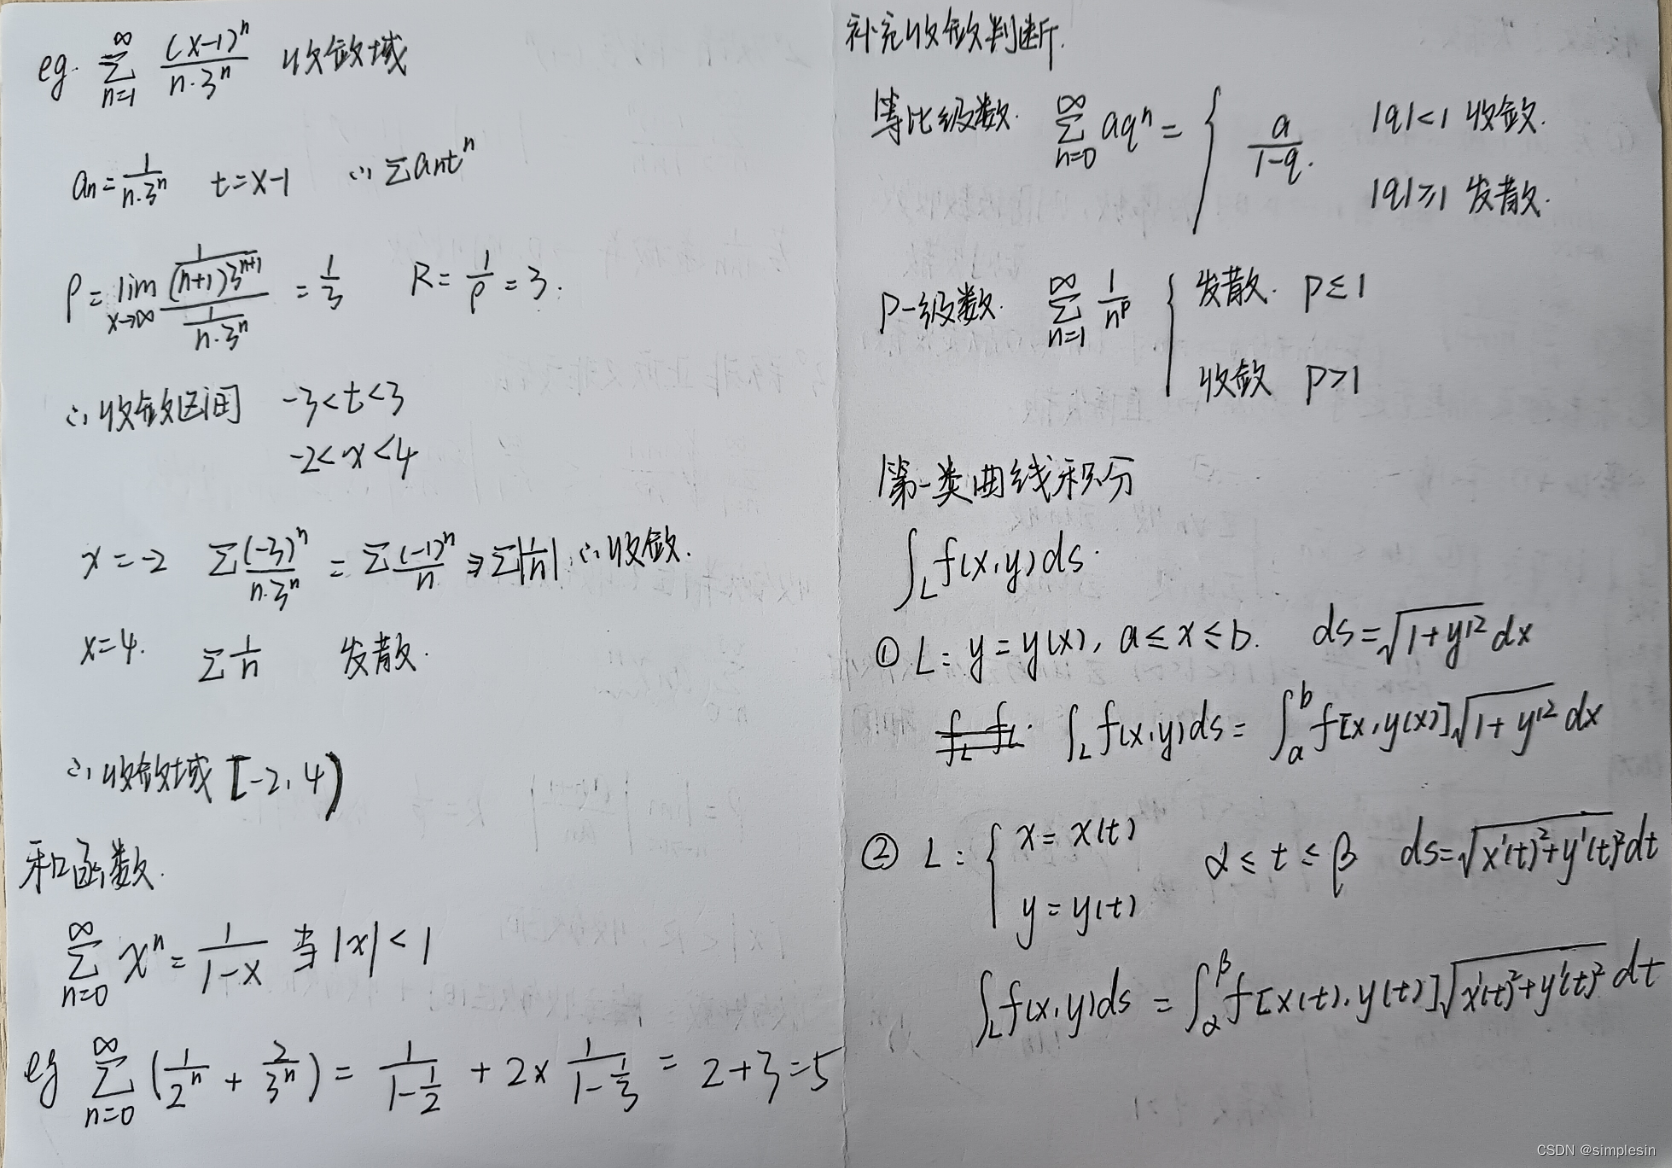 eg. ∑_{n=1}^{∞} (x-1)^n / (n·3^n) 收敛域
an = 1/(n·3^n) t=x-1 ∴ ∑ant^n
ρ = lim_{x→∞} (1/((n+1)3^{n+1})) / (1/(n·3^n)) = 1/3 R = 1/ρ = 3.
∴ 收敛区间 -3<t<3
-2<x<4
x=-2 ∑ (-3)^n/(n·3^n) = ∑ (-1)^n/n ⇒ ∑|1/n| ∴ 收敛.
x=4. ∑ 1/n 发散.
∴ 收敛域 [-2, 4)
和函数.
∑_{n=0}^{∞} x^n = 1/(1-x) 当 |x| < 1
eg ∑_{n=0}^{∞} (1/2^n + 2/3^n) = 1/(1-1/2) + 2× 1/(1-1/3) = 2+3=5
补充收敛判断.
等比级数. ∑_{n=0}^{∞} aq^n = { a/(1-q). |q|<1 收敛.
|q|≥1 发散.
P-级数. ∑_{n=1}^{∞} 1/n^p { 发散. P≤1
收敛 P>1
第一类曲线积分
∫_L f(x,y)ds.
① L: y=y(x), a≤x≤b. ds=√(1+y'^2) dx
∫_L f(x,y)ds = ∫_a^b f[x,y(x)]√(1+y'^2) dx
② L: { x=x(t)
y=y(t) α≤t≤β ds=√(x'(t)^2+y'(t)^2) dt
∫_L f(x,y)ds = ∫_α^β f[x(t),y(t)]√(x'(t)^2+y'(t)^2) dt
CSDN @simplesin